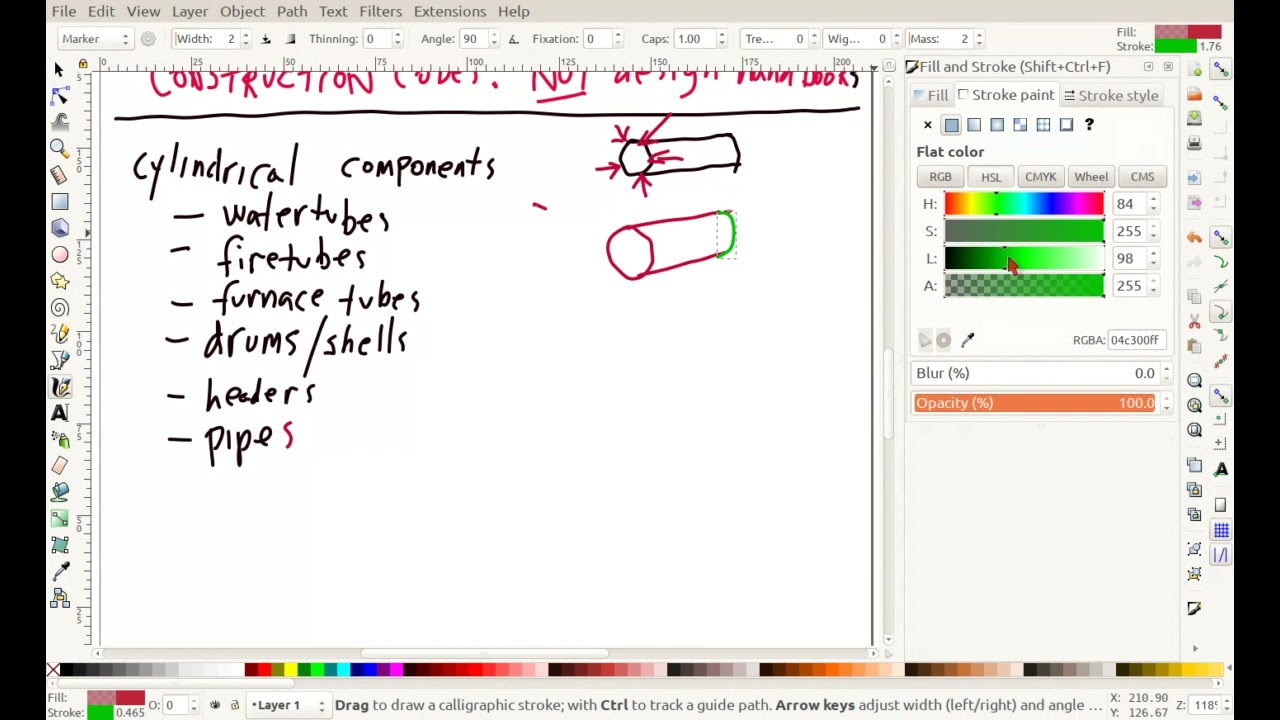 File Edit View Layer Object Path Text Filters Extensions Help
Marker Width: 2 Thinning: 0 Angle: 90 Fixation: 0 Caps: 1.00 Tre... 0 Wig... 0 Mass: 2
Fill:
Stroke: 1.76
Fill and Stroke (Shift+Ctrl+F)
Fill Stroke paint Stroke style
?
Flat color
RGB HSL CMYK Wheel CMS
H: 84
S: 255
L: 98
A: 255
RGBA: 04c300ff
Blur (%) 0.0
Opacity (%) 100.0
0 25 50 75 100 125 150 175 200
CONSTRUCTION Codes. NOT design handbooks
Cylindrical components
- watertubes
- firetubes
- furnace tubes
- drums/shells
- headers
- pipes
Fill:
Stroke: 0.465
O: 0
Layer 1
Drag to draw a calligraphic stroke; with Ctrl to track a guide path. Arrow keys adjust width (left/right) and angle ...
X: 210.90
Y: 126.67
Z: 118%